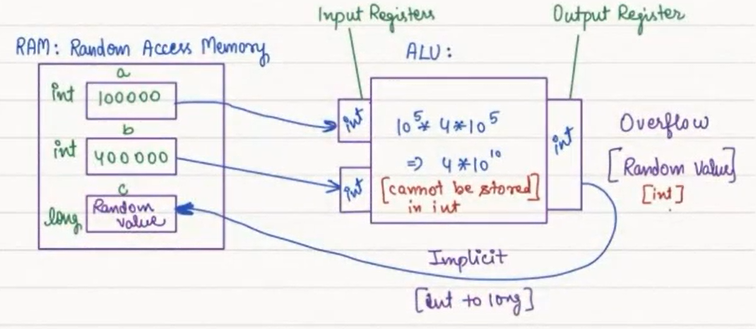 Input Registers
Output Register
RAM: Random Access Memory
ALU:
a
int 100000
b
int 400000
c
long Random value
int
int
10^5 * 4*10^5
=> 4*10^10
[cannot be stored]
in int
int
Overflow
[Random Value]
[int]
Implicit
[int to long]